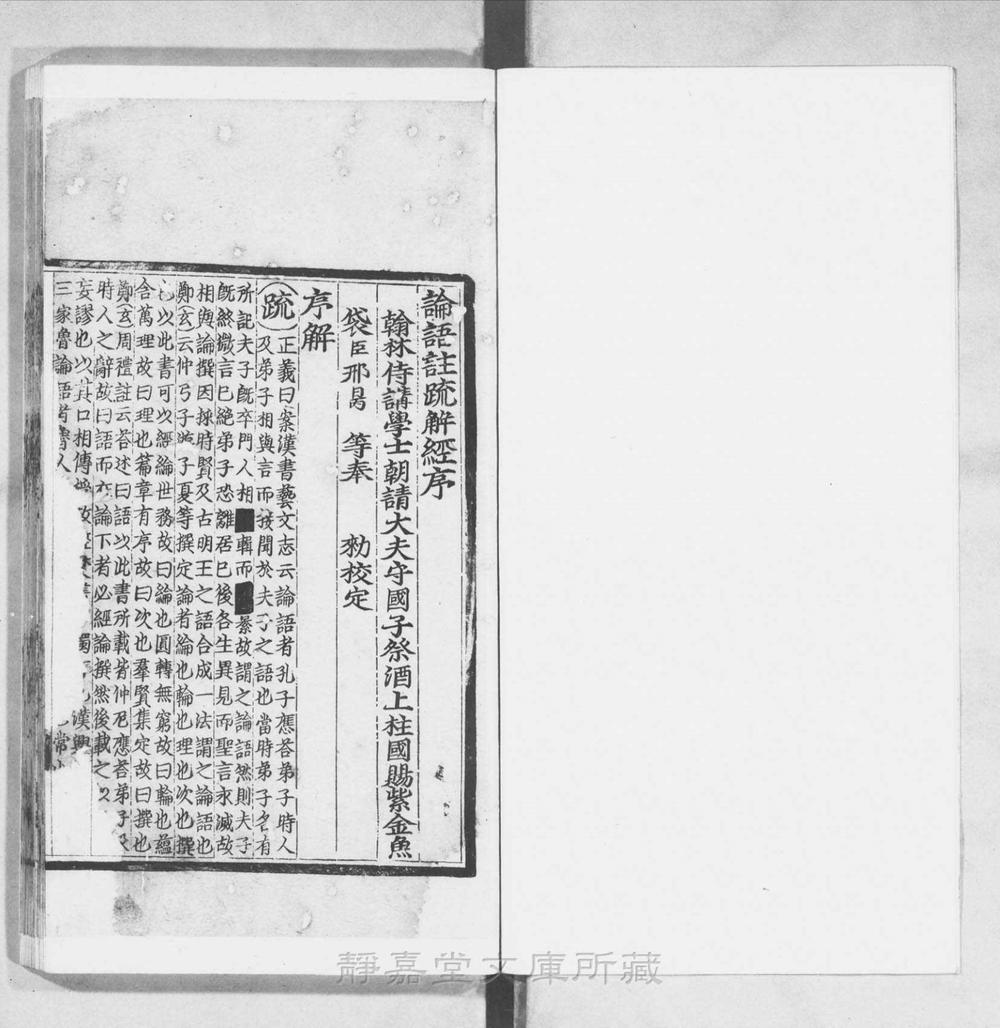 論語註疏解經序
翰林侍講學士朝請大夫守國子祭酒上柱國賜紫金魚
袋臣邢昺 等奉 勑校定
序解
疏 正義曰案漢書藝文志云論語者孔子應荅弟子時人
及弟子相與言而接聞於夫子之語也當時弟子各有
所記夫子旣卒門人相 輯而 纂故謂之論語然則夫子
旣終微言已絕弟子恐離居已後各生異見而聖言永滅故
相與論撰因採時賢及古明王之語合成一法謂之論語也
鄭玄云仲弓子 子夏等撰定論者綸也輪也理也次也撰
也以此書可以經綸世務故曰綸也圓轉無窮故曰輪也蘊
含萬理故曰理也篇章有序故曰次也羣賢集定故曰撰也
鄭玄周禮註云荅述曰語以此書所載皆仲尼應荅弟子及
時人之辭故曰語而在論下者必經論撰然後載之以
妄謬也以其口相傳 漢興
三家魯論語者魯人 常
靜嘉堂文庫所藏